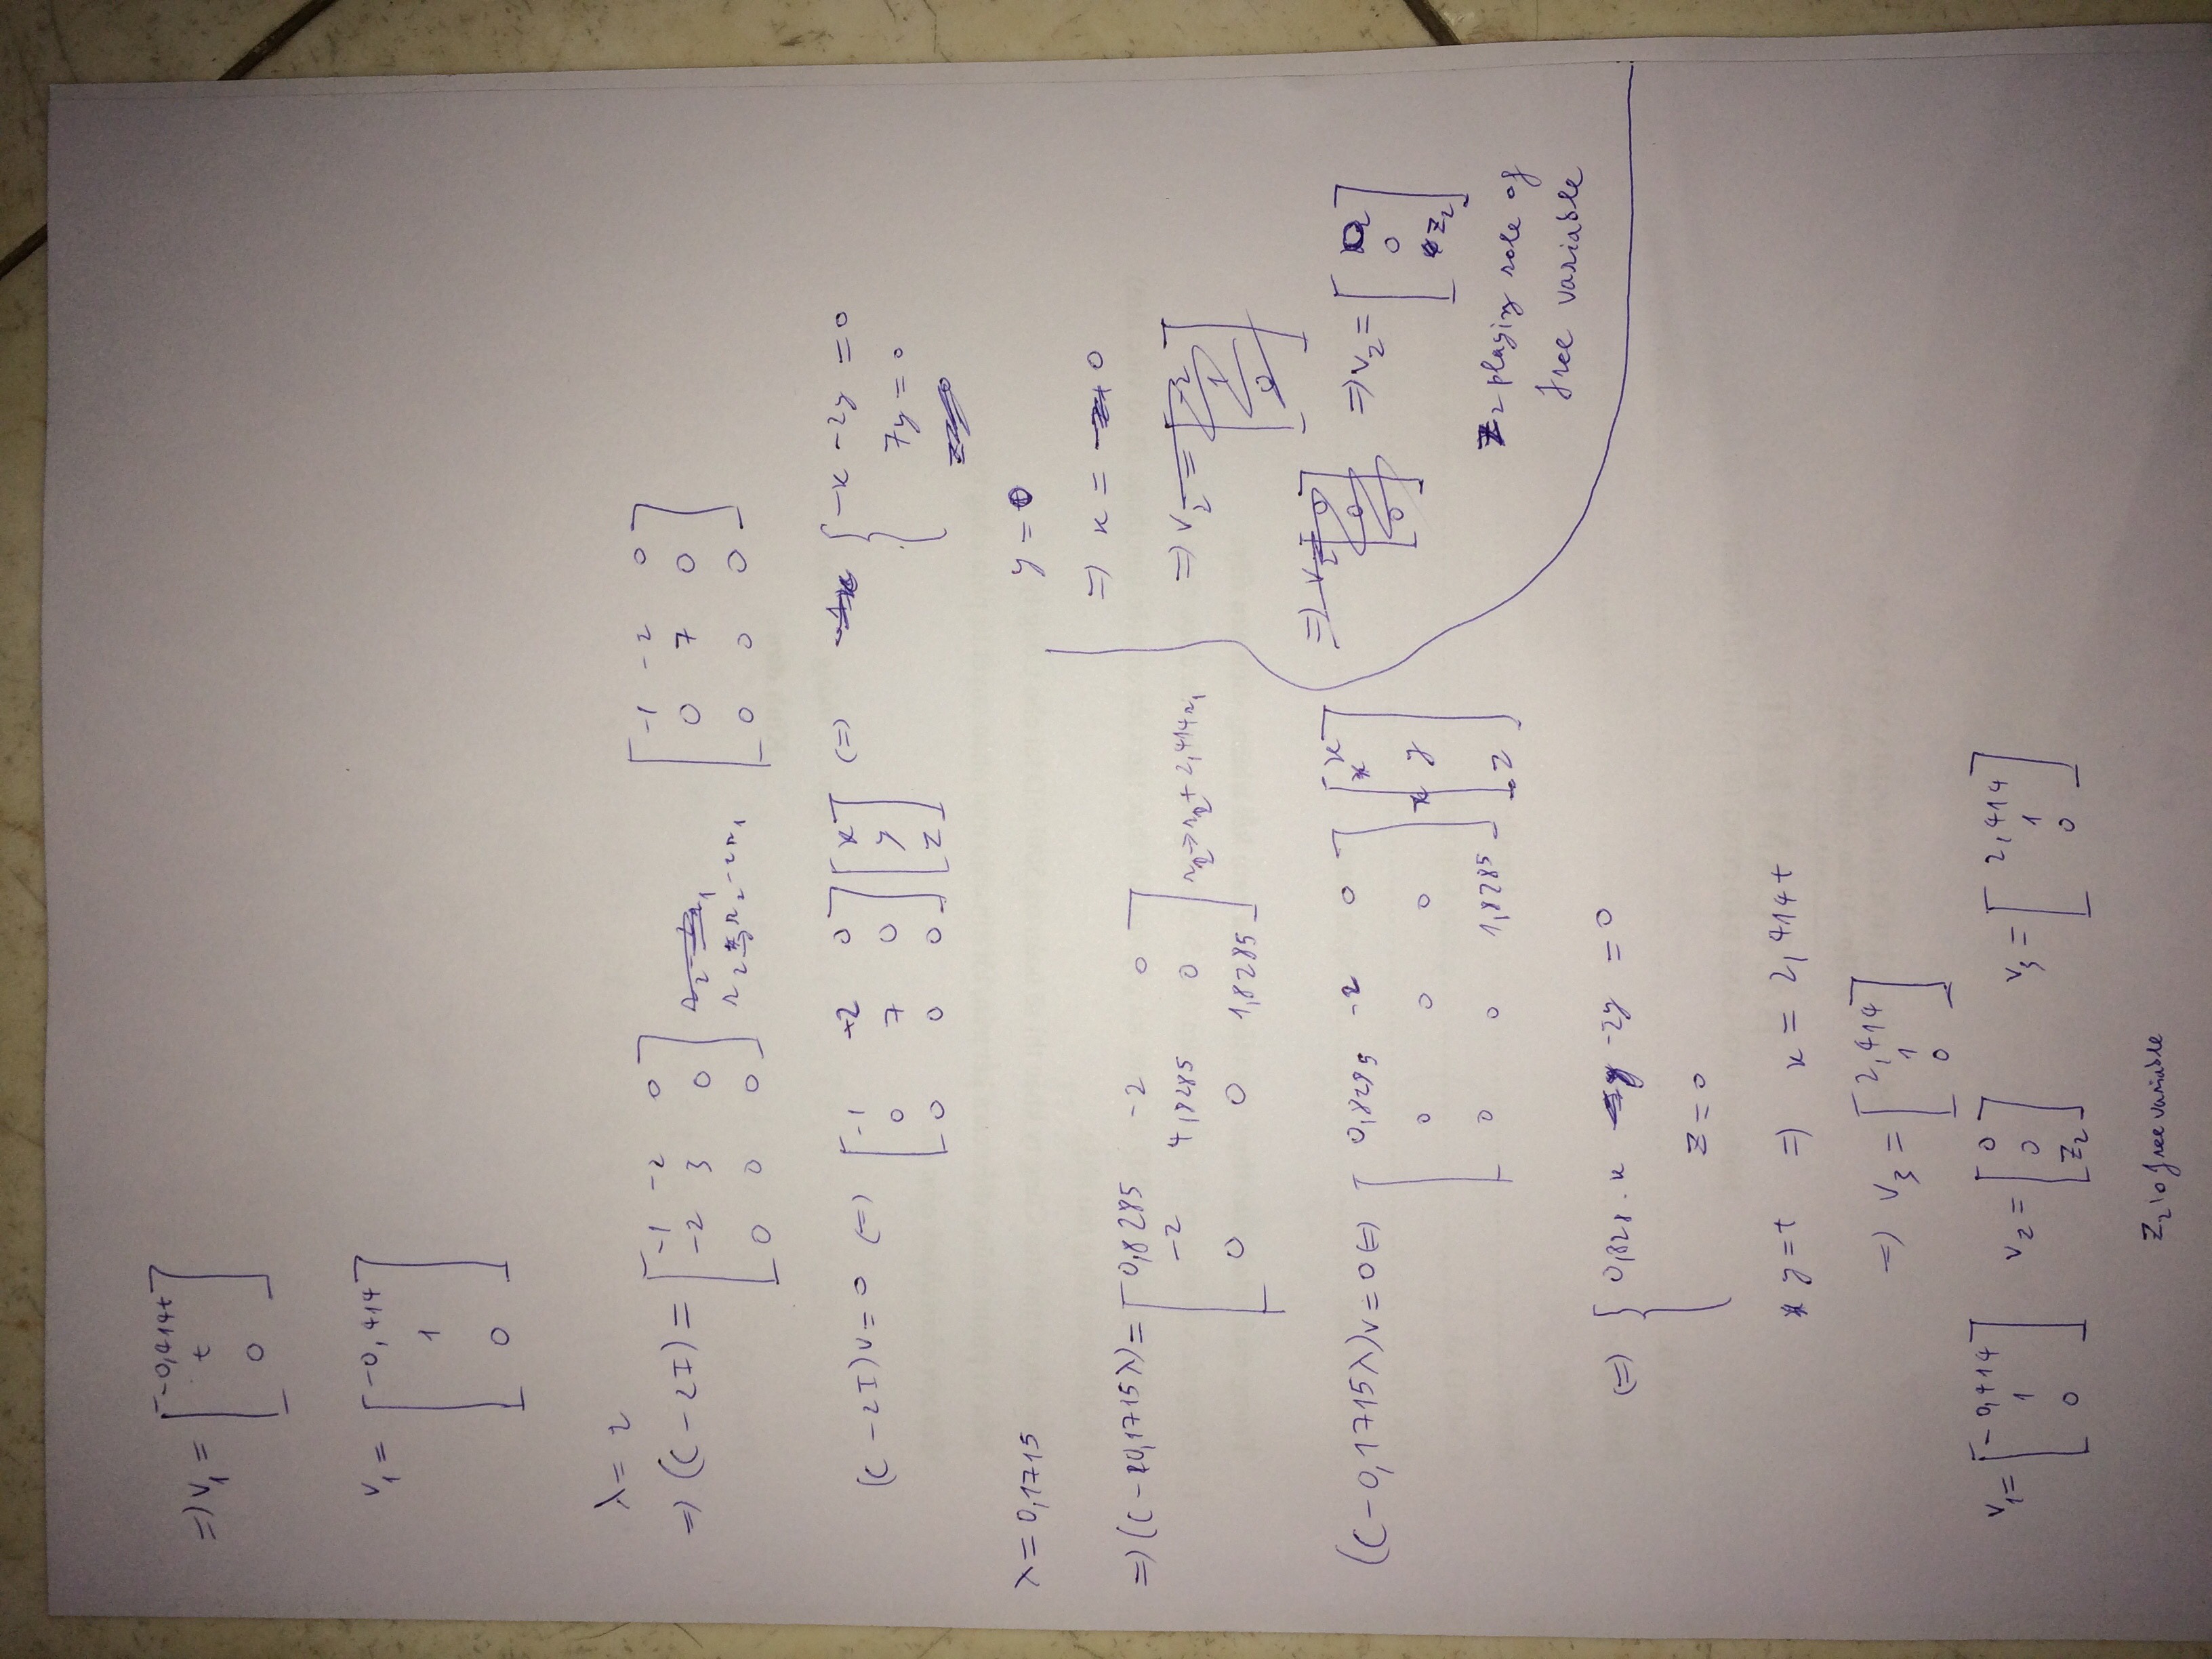 => v₁ = [ -0,414t
t
0 ]
v₁ = [ -0,414
1
0 ]
λ = 2
=> (C - 2I) = [ -1 -2 0
-2 3 0
0 0 0 ] r₂ → r₂ - 2r₁ [ -1 -2 0
0 7 0
0 0 0 ]
(C - 2I)v = 0 (=) [ -1 -2 0
0 7 0
0 0 0 ] [ x
y
z ] (=) { -x - 2y = 0
7y = 0
y = 0
=> x = 0
=> v₂ = [ 0
0
z₂ ]
z₂ playing role of
free variable
λ = 0,1715
=> (C - 0,1715λ) = [ 0,8285 -2 0
-2 4,8285 0
0 0 1,8285 ] r₂ → r₂ + 2,414r₁
(C - 0,1715λ)v = 0 (=) [ 0,8285 -2 0
0 0 0
0 0 1,8285 ] [ x
y
z ]
(=) { 0,828 . x - 2y = 0
z = 0
y = t => x = 2,414t
=> v₃ = [ 2,414
1
0 ]
v₁ = [ -0,414
1
0 ] v₂ = [ 0
0
z₂ ] v₃ = [ 2,414
1
0 ]
z₂ free variable